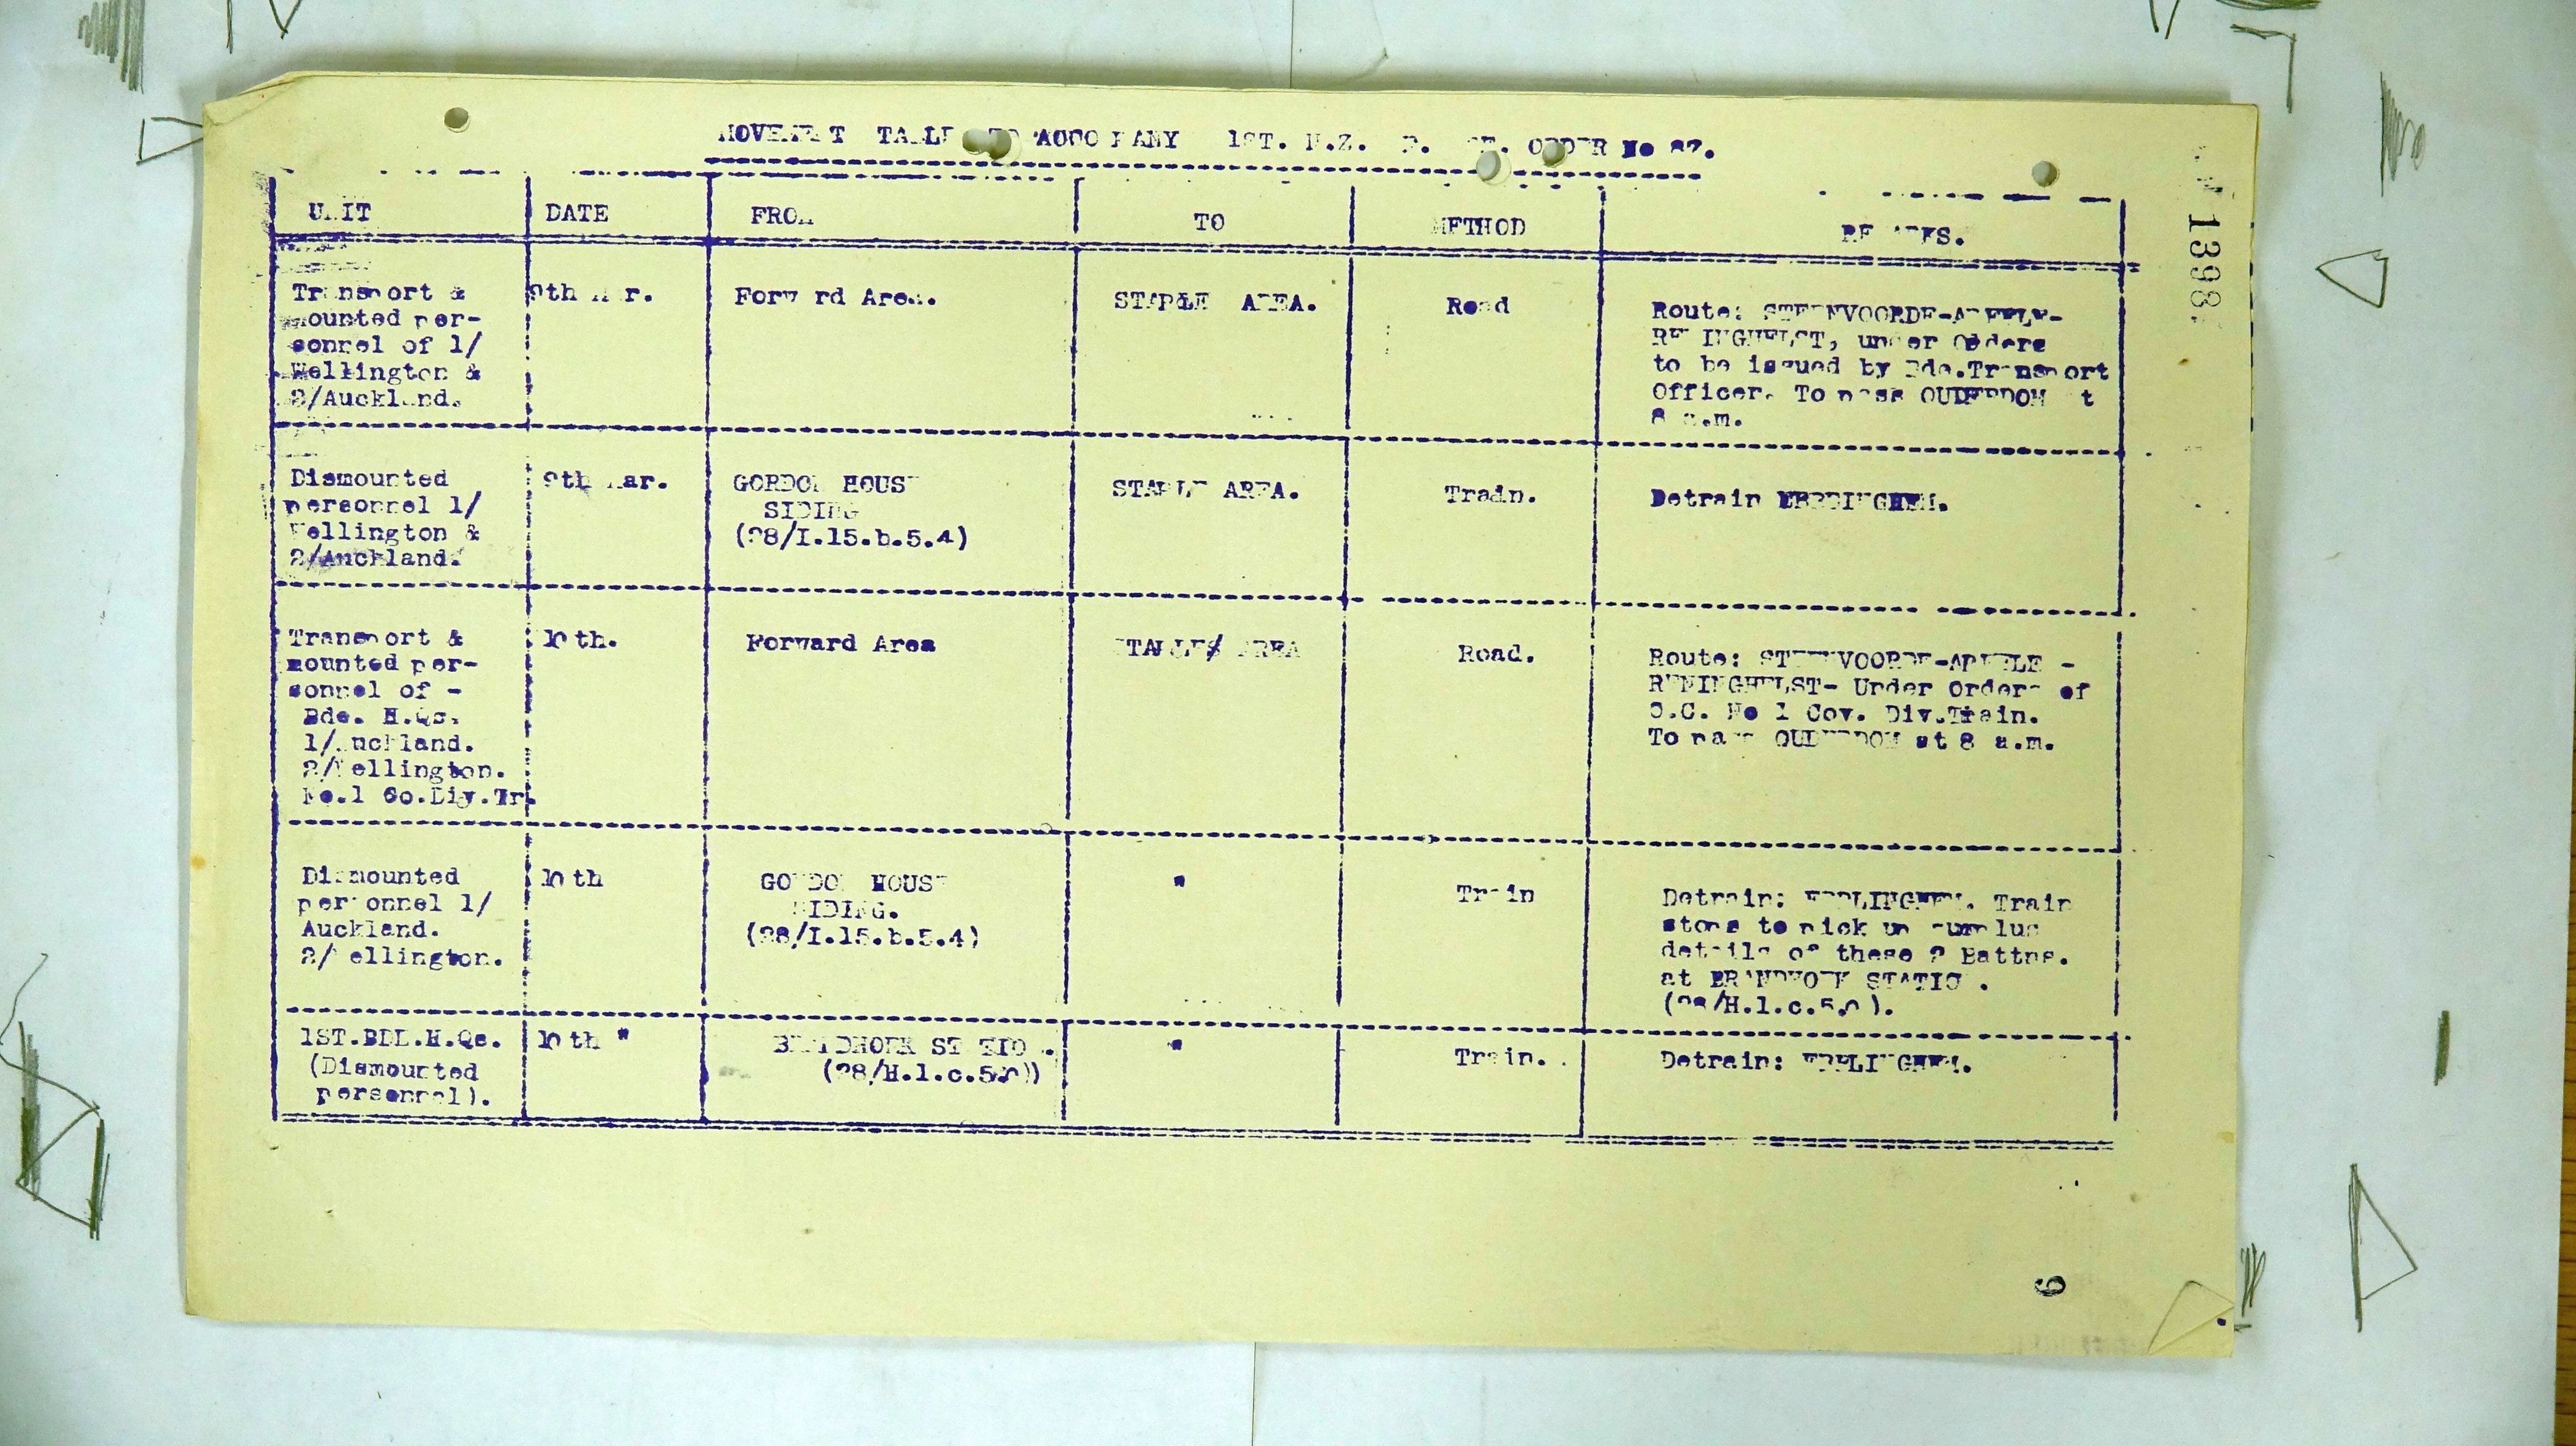 MOVEMENT TABLE TO ACCOMPANY 1ST. N.Z. ORDER No 87.
UNIT DATE FROM TO METHOD REMARKS.
Transport & mounted per-
sonnel of 1/
Wellington &
2/Auckland.
9th Mar.
Forward Area.
STAPLE AREA.
Road
Route: STEENVOORDE-ABEELE-
RENINGHELST, under Orders
to be issued by Bde.Transport
Officer. To pass OUDERDOM at
8 a.m.
Dismounted
personnel 1/
Wellington &
2/Auckland.
9th Mar.
GORDON HOUSE
SIDING
(28/I.15.b.5.4)
STAPLE AREA.
Train.
Detrain EBBLINGHEM.
Transport &
mounted per-
sonnel of -
Bde. H.Qs.
1/Auckland.
2/Wellington.
No.1 Co.Div.Tr.
10th.
Forward Area
STAPLE AREA
Road.
Route: STEENVOORDE-ABEELE -
RENINGHELST- Under Orders of
O.C. No 1 Coy. Div.Train.
To pass OUDERDOM at 8 a.m.
Dismounted
personnel 1/
Auckland.
2/Wellington.
10th
GORDON HOUSE
SIDING.
(28/I.15.b.5.4)
"
Train
Detrain: EBBLINGHEM. Train
stops to pick up surplus
details of these 2 Battns.
at BRANDHOEK STATION.
(28/H.1.c.5.0).
1ST.BDE.H.Qs.
(Dismounted
personnel).
10th "
BRANDHOEK STATION.
(28/H.1.c.5.0))
"
Train.
Detrain: EBBLINGHEM.
1398
6